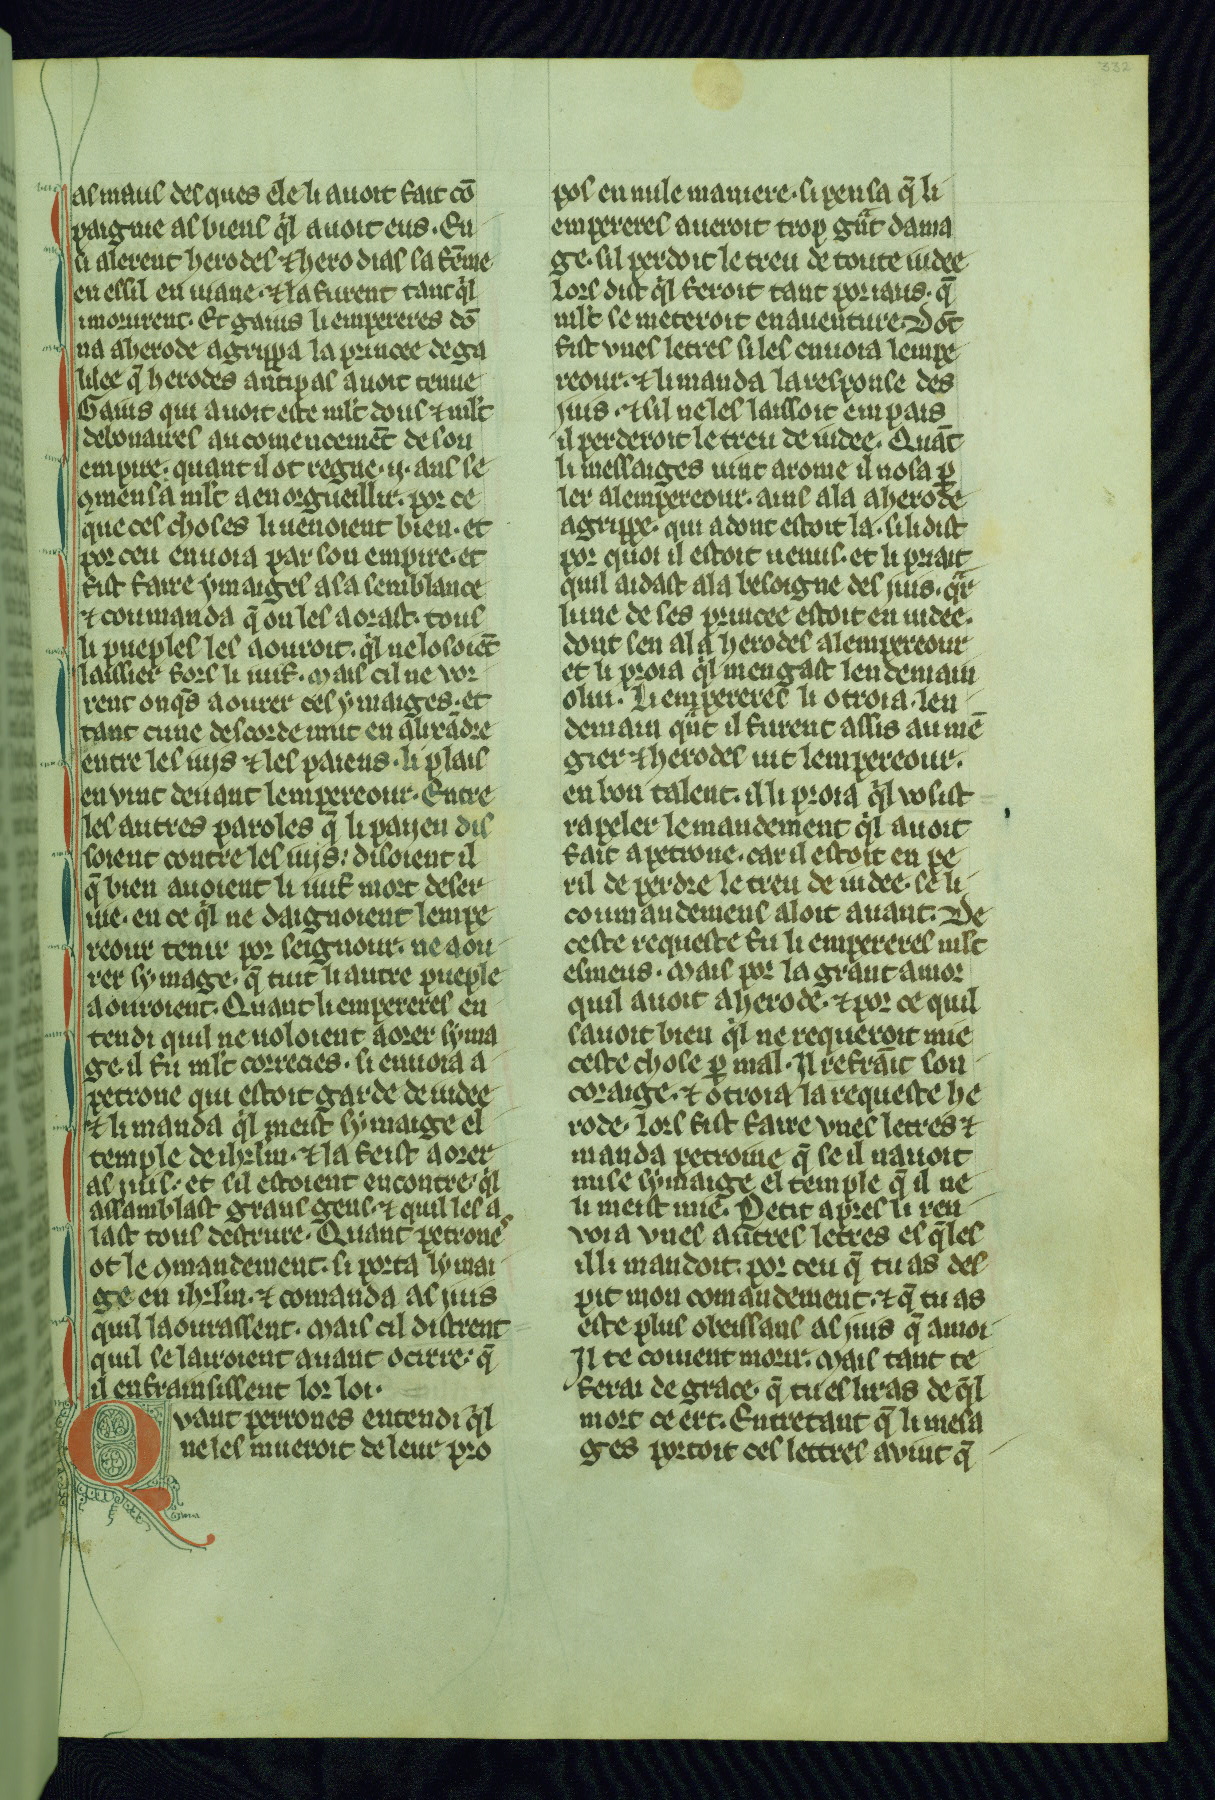 332
as maus des ques ele li auoit fait cō
paignie as biens q̓l auoit eus. En
si alerent herodes ⁊ herodias sa fēme
en essil en uiane. ⁊ la furent tant q̓l
i morurent. Et gaius li empereres dō
na a herode agrippa la princee de ga
lilee q̄ herodes antipas auoit tenue
Gaius qui auoit este ml̓t dous ⁊ ml̓t
debonaires au comencemēt de son
empire. quant il ot regne .ij. ans se
ꝯmensa ml̓t a enorgueillir. por ce
que ces choses li uenoient bien. et
por ceu enuoia par son empire. et
fist faire ymaiges a la semblance
⁊ coumanda q̄ on les aorast. tous
li pueples les aouroit. q̓l ne losoiēt
laissier fors li iuif. Mais cil ne vor
rent onq̄s aourer ces ymaiges. et
tant cune descorde mut en alixādre
entre les iuys ⁊ les paiens. li plais
en vint deuant lempereour. Entre
les autres paroles q̄ li payen dis
soient contre les iuys: disoient il
q̄ bien auoient li iuif mort deser
uie. en ce q̓l ne daignoient lempe
reour tenir por seignour. ne aou
rer symage. q̄ tuit li autre pueple
aouroient. Quant li empereres en
tendi quil ne uoloient aorer syma
ge. il fu ml̓t correcies. si enuoia a
petrone qui estoit garde de iudee
⁊ li manda q̓l meist symaige el
temple de ihrl̄m. ⁊ la feist aorer
as juis. et sil estoient encontre. q̓l
assamblast grans gens. ⁊ quil les a
last tous destrure. Quant petrone
ot le ꝯmandement. si porta lymai
ge en ihrl̄m. ⁊ comanda as juis
quil laourassent. Mais cil distrent
quil se lairoient auant ocirre. q̄
il enfrainsissent lor loi.
Quant perrones entendi q̓l
ne les mueroit de leur pro
pos en nule maniere. si pensa q̄ li
empereres aueroit trop gr̄nt dama
ge. sil perdoit le treu de toute iudee
Lors dist q̓l feroit tant por iaus. q̄
ml̓t se meteroit en auenture. Dōt
fist vnes letres si les enuoia lempe
reour. ⁊ li manda la response des
juis. ⁊ sil ne les laissoit em pais
il perderoit le treu de iudee. Quāt
li messaiges uint a rome il nosa ꝑ
ler a lempereour. ains ala a herode
agrippe. qui adont estoit la. si li dist
por quoi il estoit uenus. et li priait
quil aidast a la besoigne des juis. qr̄
lune de ses princee estoit en iudee.
dont sen ala herodes a lempereour
et li proia q̓l mengast lendemain
o lui. Li empereres li otroia. len
demain qn̄t il furent assis au mē
gier ⁊ herodes uit lempereour.
en bon talent. il li proia q̓l vosist
rapeler le mandement q̓l auoit
fait a petrone. car il estoit en pe
ril de perdre le treu de iudee. se li
coumandemens aloit auant. De
ceste requeste fu li empereres ml̓t
esmeus. Mais por la grant amor
quil auoit a herode. ⁊ por ce quil
sauoit bien q̓l ne requeroit mie
ceste chose ꝑ mal. Il refraīt son
coraige. ⁊ otroia la requeste he
rode. Lors fist faire vnes letres ⁊
manda petroine q̄ se il nauoit
mise symaige el temple q̄ il ne
li meist mie. Petit apres li ren
voia vnes autres letres es q̄les
il li mandoit. por ceu q̄ tu as des
pit mon comandement. ⁊ q̄ tu as
este plus obeissans as juis q̄ a moi
Il te couient morir. Mais tant te
ferai de grace. q̄ tu esliras de q̄l
mort ce ert. Entretant q̄ li mesa
ges portoit ces lettres avint q̄